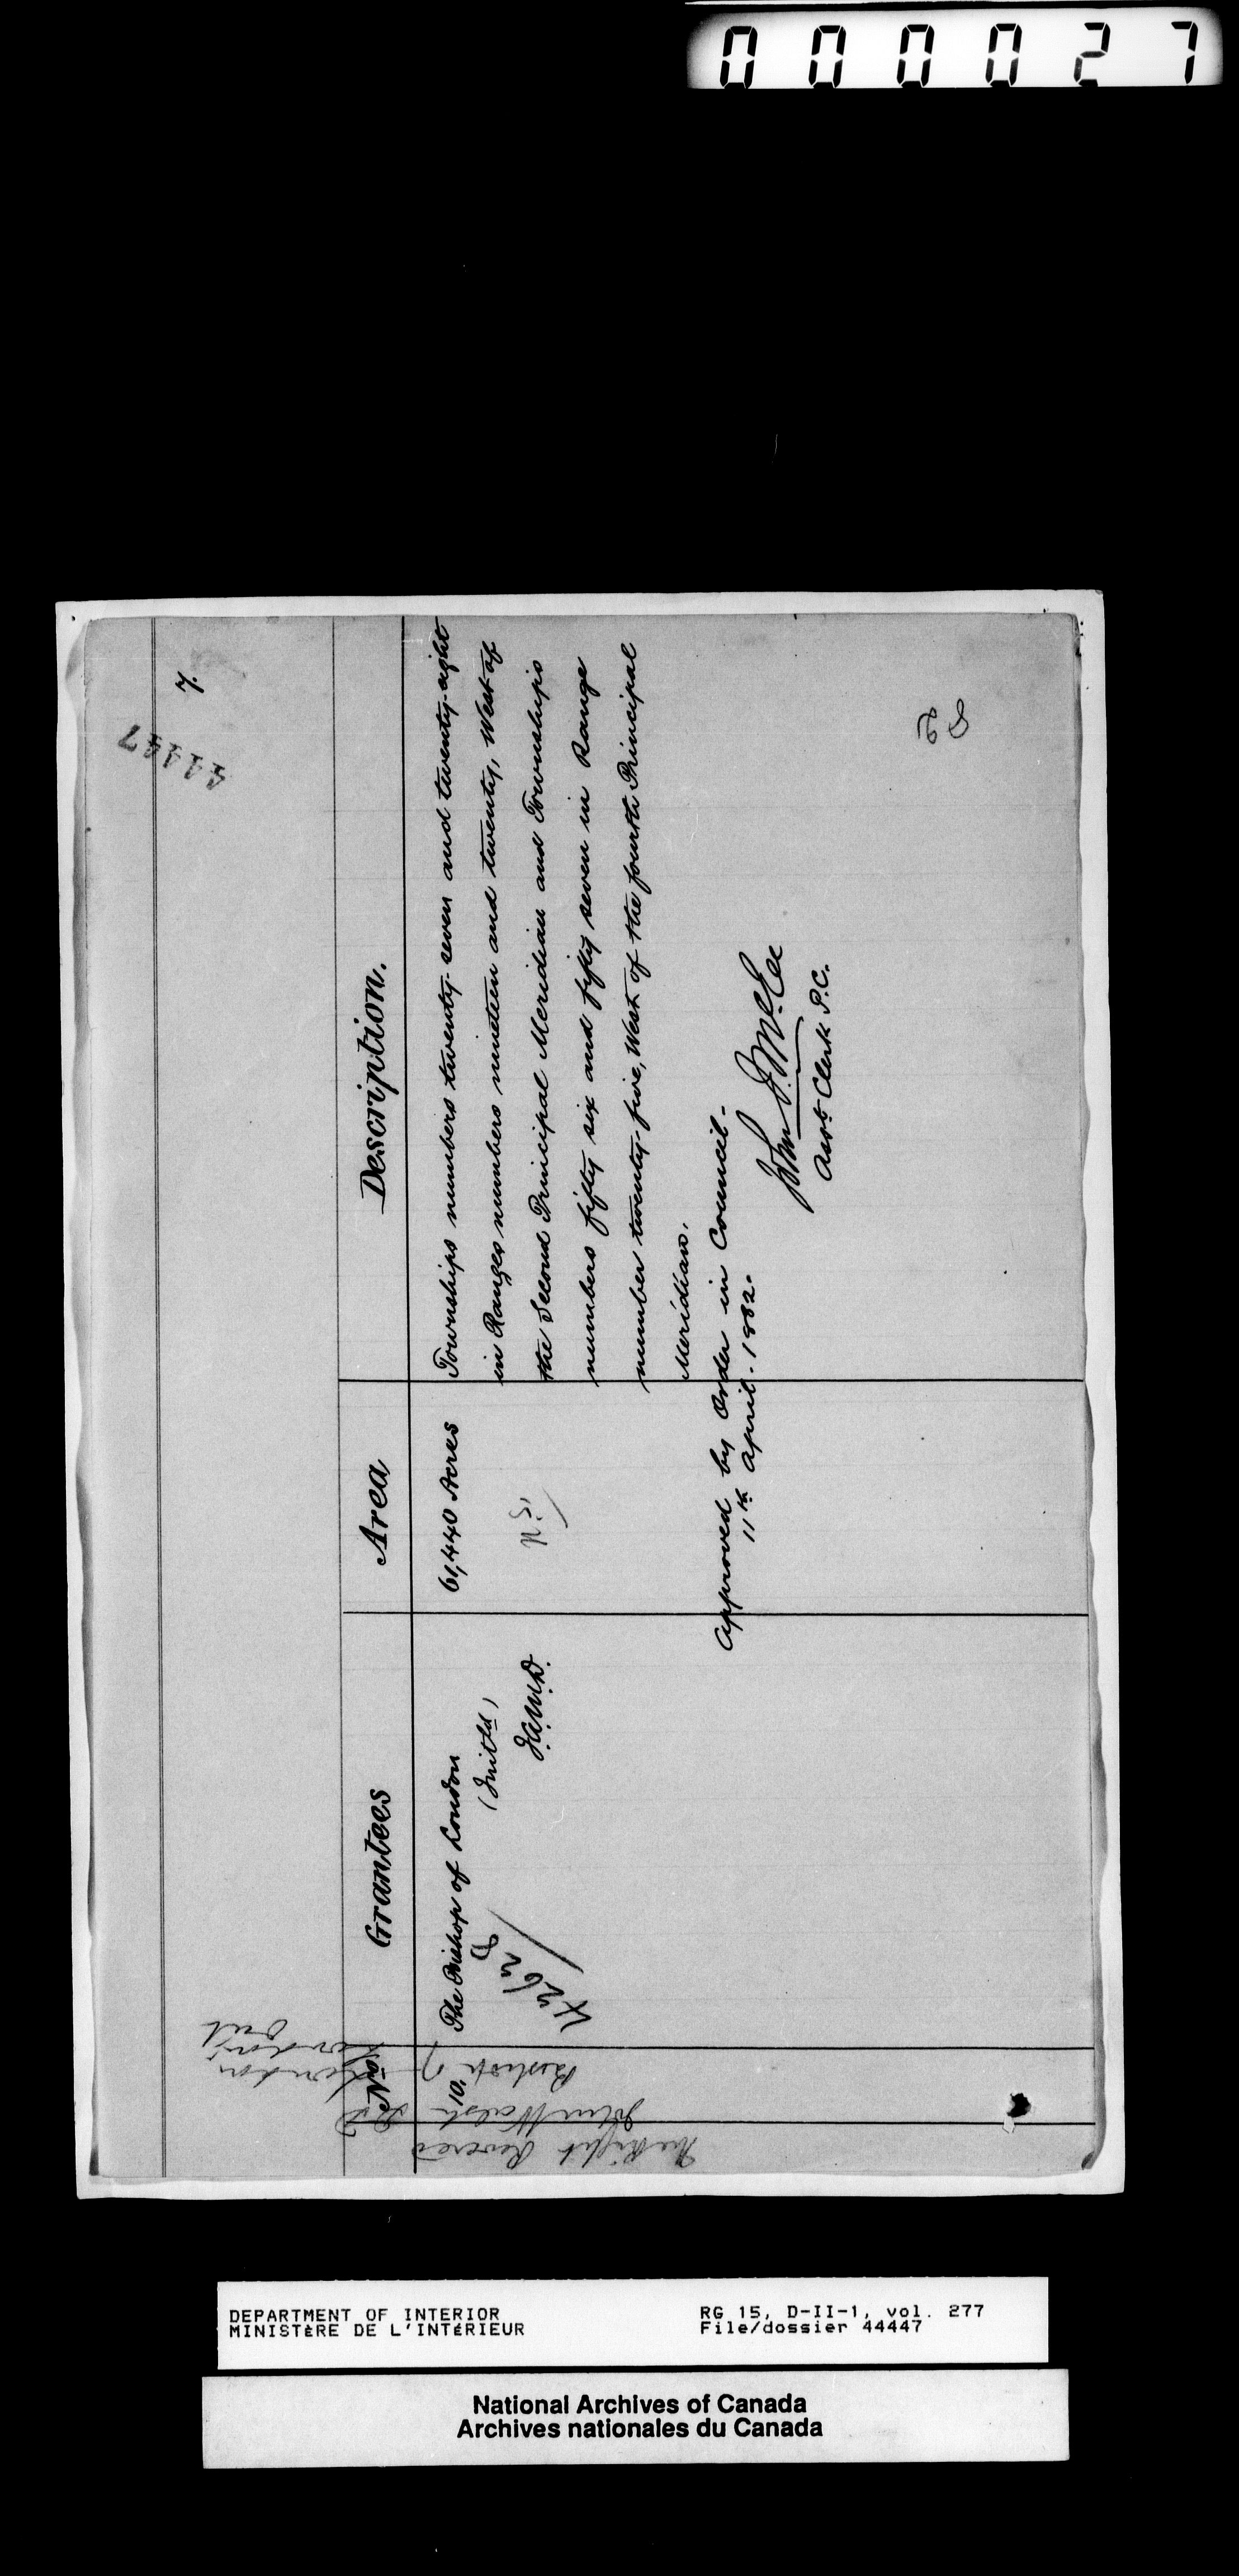 000027
7.
44447
No.
Grantees
Area
Description.
10.
The Bishop of London
(Init'd)
J.A.M.D.
61,440 Acres
Townships numbers twenty-seven and twenty-eight
in Ranges numbers nineteen and twenty, West of
the Second Principal Meridian and Townships
numbers fifty six and fifty seven in Range
number twenty-five, West of the fourth Principal
Meridian.
Approved by Order in Council-
11th April. 1882.
John J. McGee
Asst. Clerk P.C.
The Right Revered
John Walsh D.D.
Bishop of
London
London
Ont
DEPARTMENT OF INTERIOR
MINISTÈRE DE L'INTÉRIEUR
RG 15, D-II-1, vol. 277
File/dossier 44447
National Archives of Canada
Archives nationales du Canada